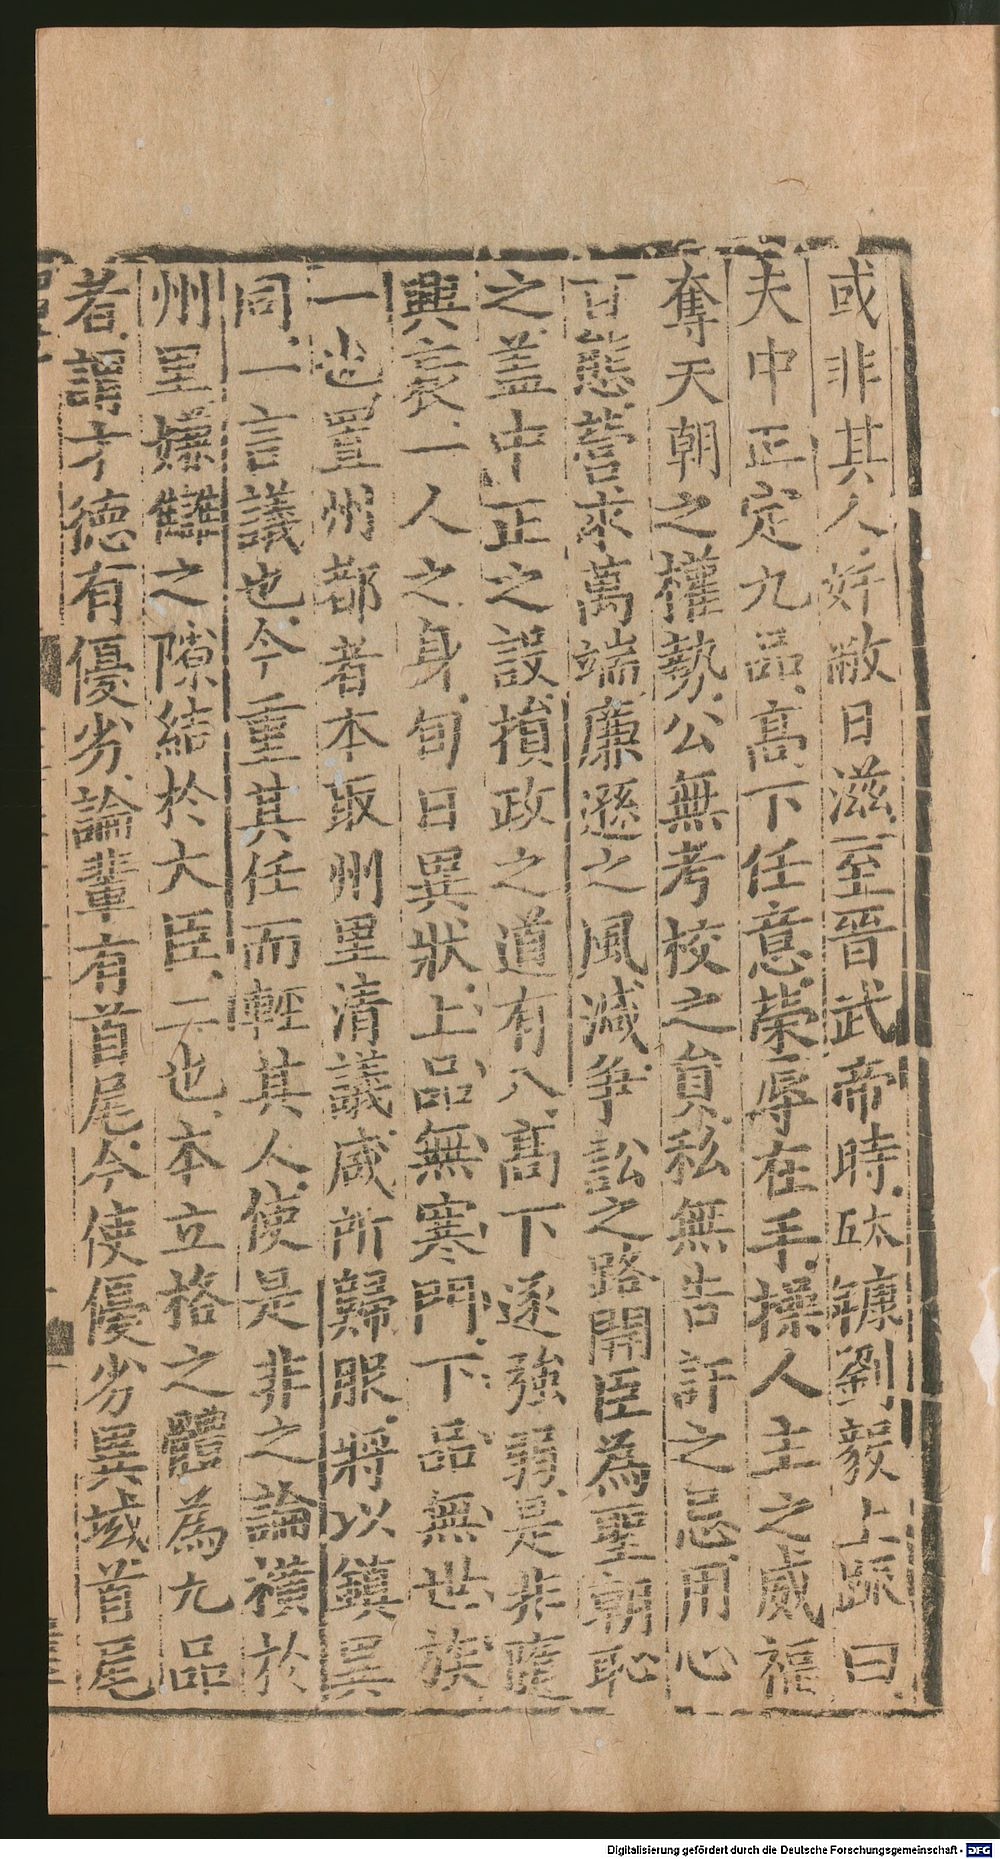 或非其人奸敝日滋至晉武帝時太尉劉毅上䟽曰
夫中正定九品高下任意榮辱在手操人主之威福
奪天朝之權勢公無考校之負私無告訐之忌用心
百態營求萬端廉遜之風滅爭訟之路開臣為聖朝恥
之盖中正之設損政之道有八高下逐強弱是非隨
興衰一人之身旬日異狀上品無寒門下品無世族
一也置州都者本取州里清議咸所歸服將以鎮異
同一言議也今重其任而輕其人使是非之論橫於
州里嫌讎之隙結於大臣二也本立格之體為九品
者謂才德有優劣論輩有首尾今使優劣異域首尾
Digitalisierung gefördert durch die Deutsche Forschungsgemeinschaft - DFG